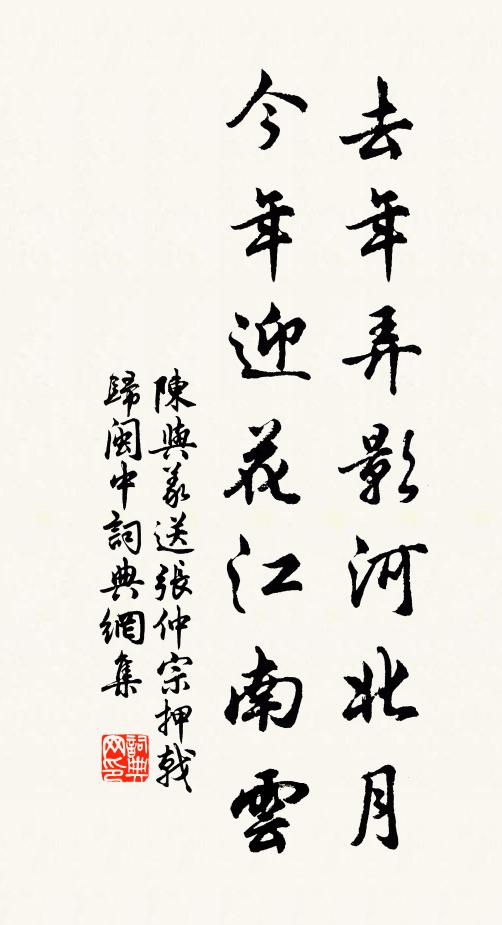 去年弄影河北月
今年迎花江南雲
陳與義送張仲宗押戟
歸閩中詞典網集
詞典网印